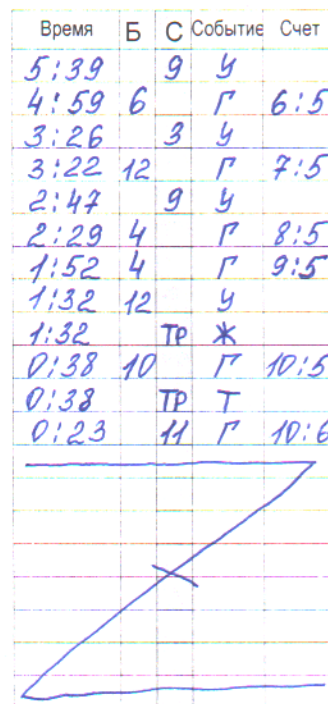 Время Б С Событие Счет
5:39 9 У
4:59 6 Г 6:5
3:26 3 У
3:22 12 Г 7:5
2:47 9 У
2:29 4 Г 8:5
1:52 4 Г 9:5
1:32 12 У
1:32 ТР Ж
0:38 10 Г 10:5
0:38 ТР Т
0:23 11 Г 10:6